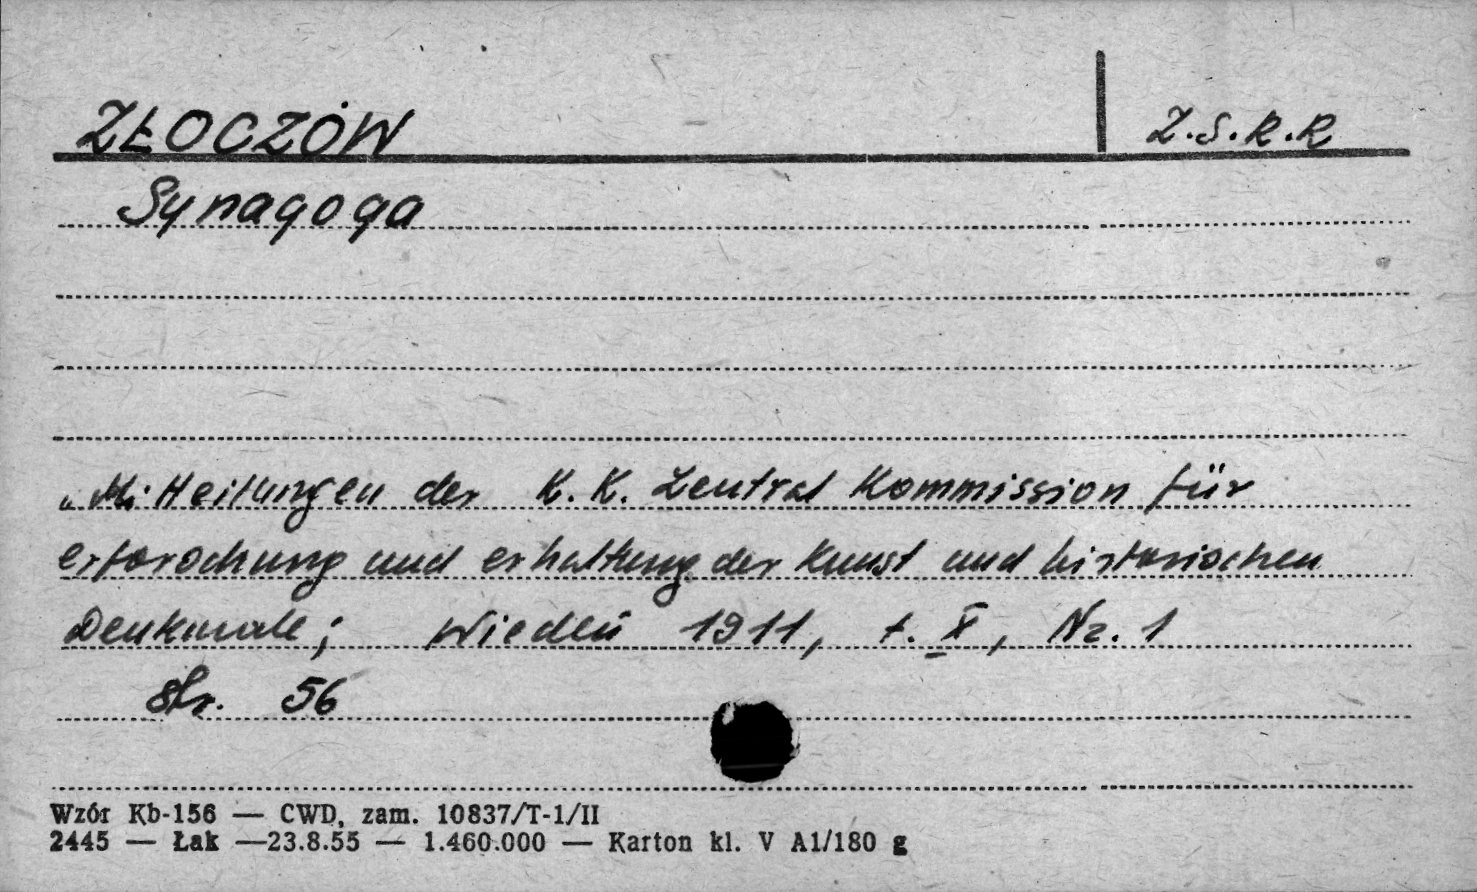 ZŁOCZÓW Z.S.R.R
Synagoga
„Mitteilungen der K.K. Zentral Kommission für
erforschung und erhaltung der Kunst und historischen
Denkmale; Wiedeń 1911, t. X, Nr. 1
str. 56
Wzór Kb-156 — CWD, zam. 10837/T-1/II
2445 — Łak —23.8.55 — 1.460.000 — Karton kl. V A1/180 g